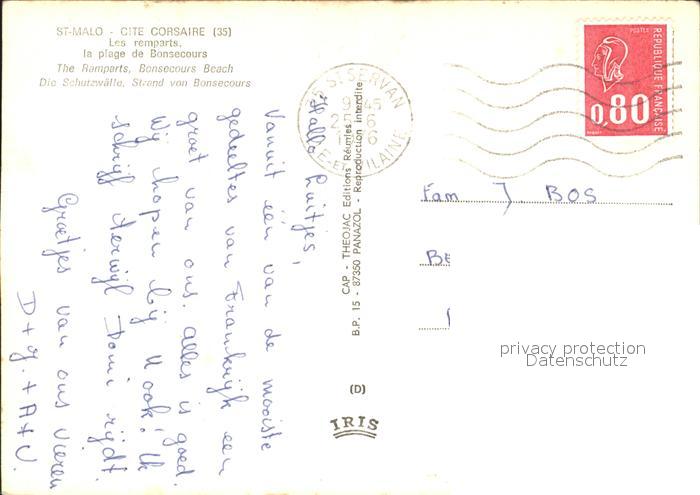 ST-MALO - CITE CORSAIRE (35)
Les remparts,
la plage de Bonsecours
The Ramparts, Bonsecours Beach
Die Schutzwälle, Strand von Bonsecours
Hallo Luitjes,
Vanuit één van de mooiste
gedeeltes van Frankrijk een
groet van ons. Alles is goed.
Wij hopen bij U ook! Ik
schrijf terwijl Domi rijdt.
Groetjes van ons vieren
D + G. + A + U.
35 ST SERVAN
ILLE-ET-VILAINE
CAP - THEOJAC Editions Réunies
B.P. 15 - 87350 PANAZOL - Reproduction interdite
(D)
IRIS
POSTES
REPUBLIQUE FRANÇAISE
0,80
Fam J. BOS
BE
privacy protection
Datenschutz